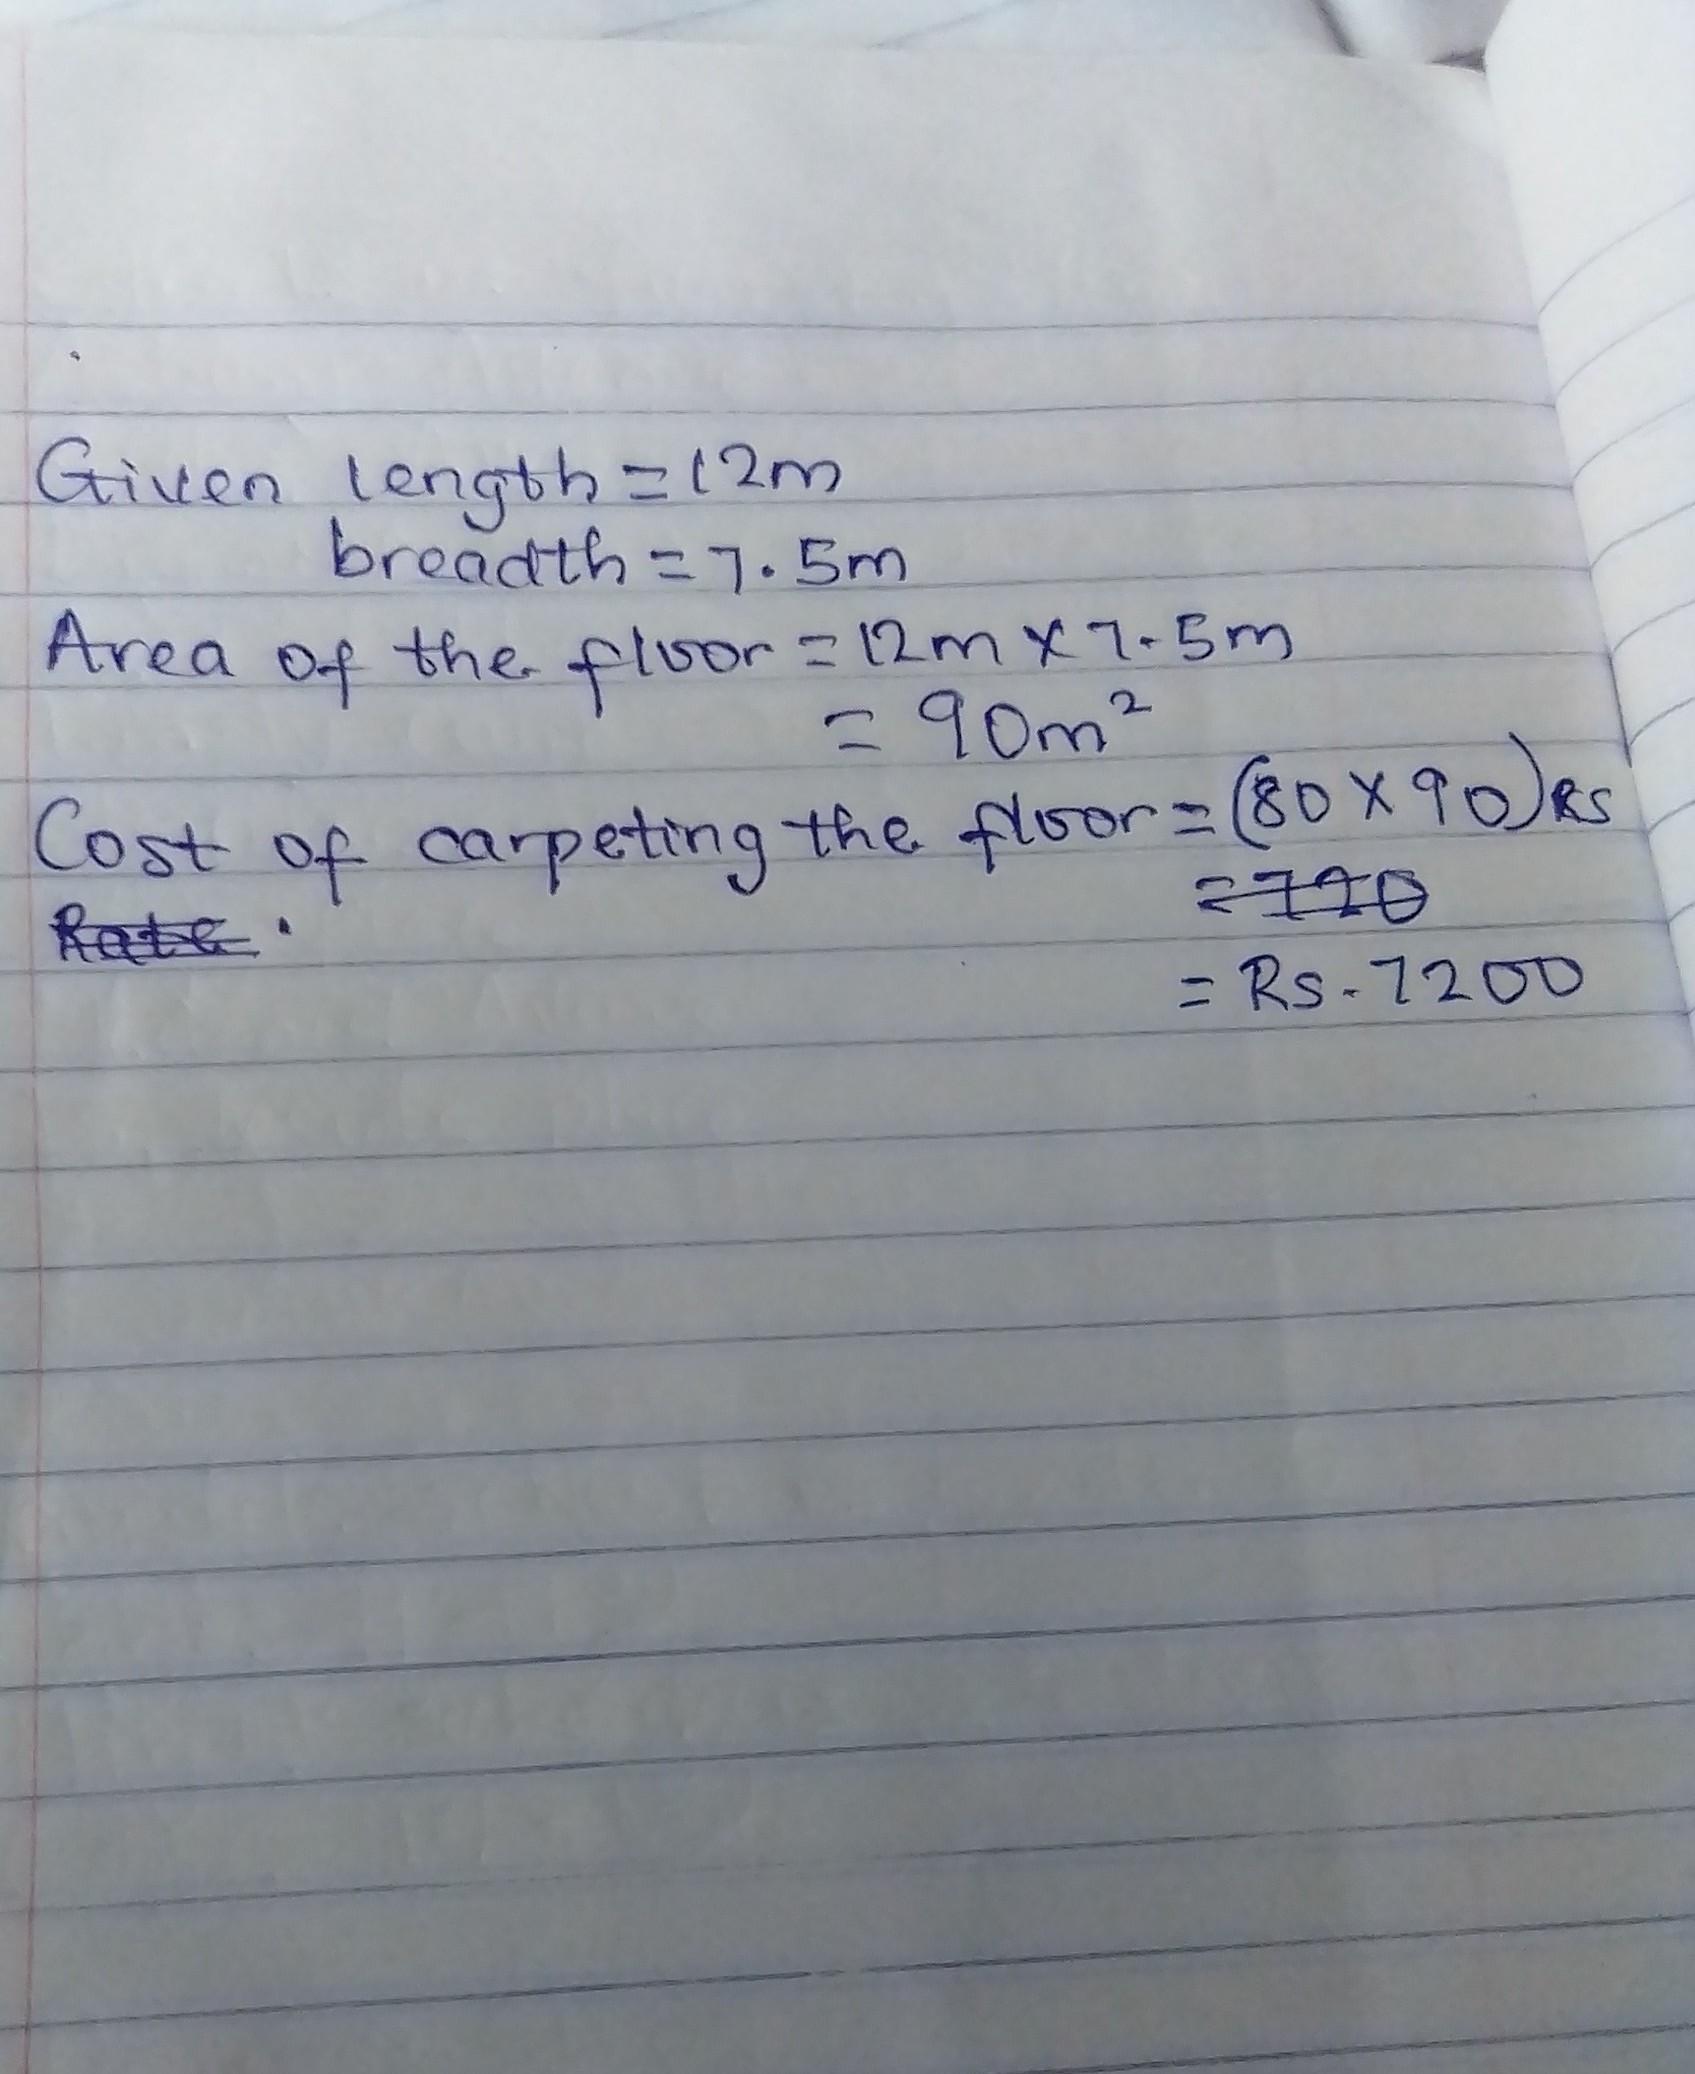 Given length = 12m
breadth = 7.5m
Area of the floor = 12m × 7.5m
= 90m²
Cost of carpeting the floor = (80 × 90) Rs
= 720
Rate.
= Rs. 7200